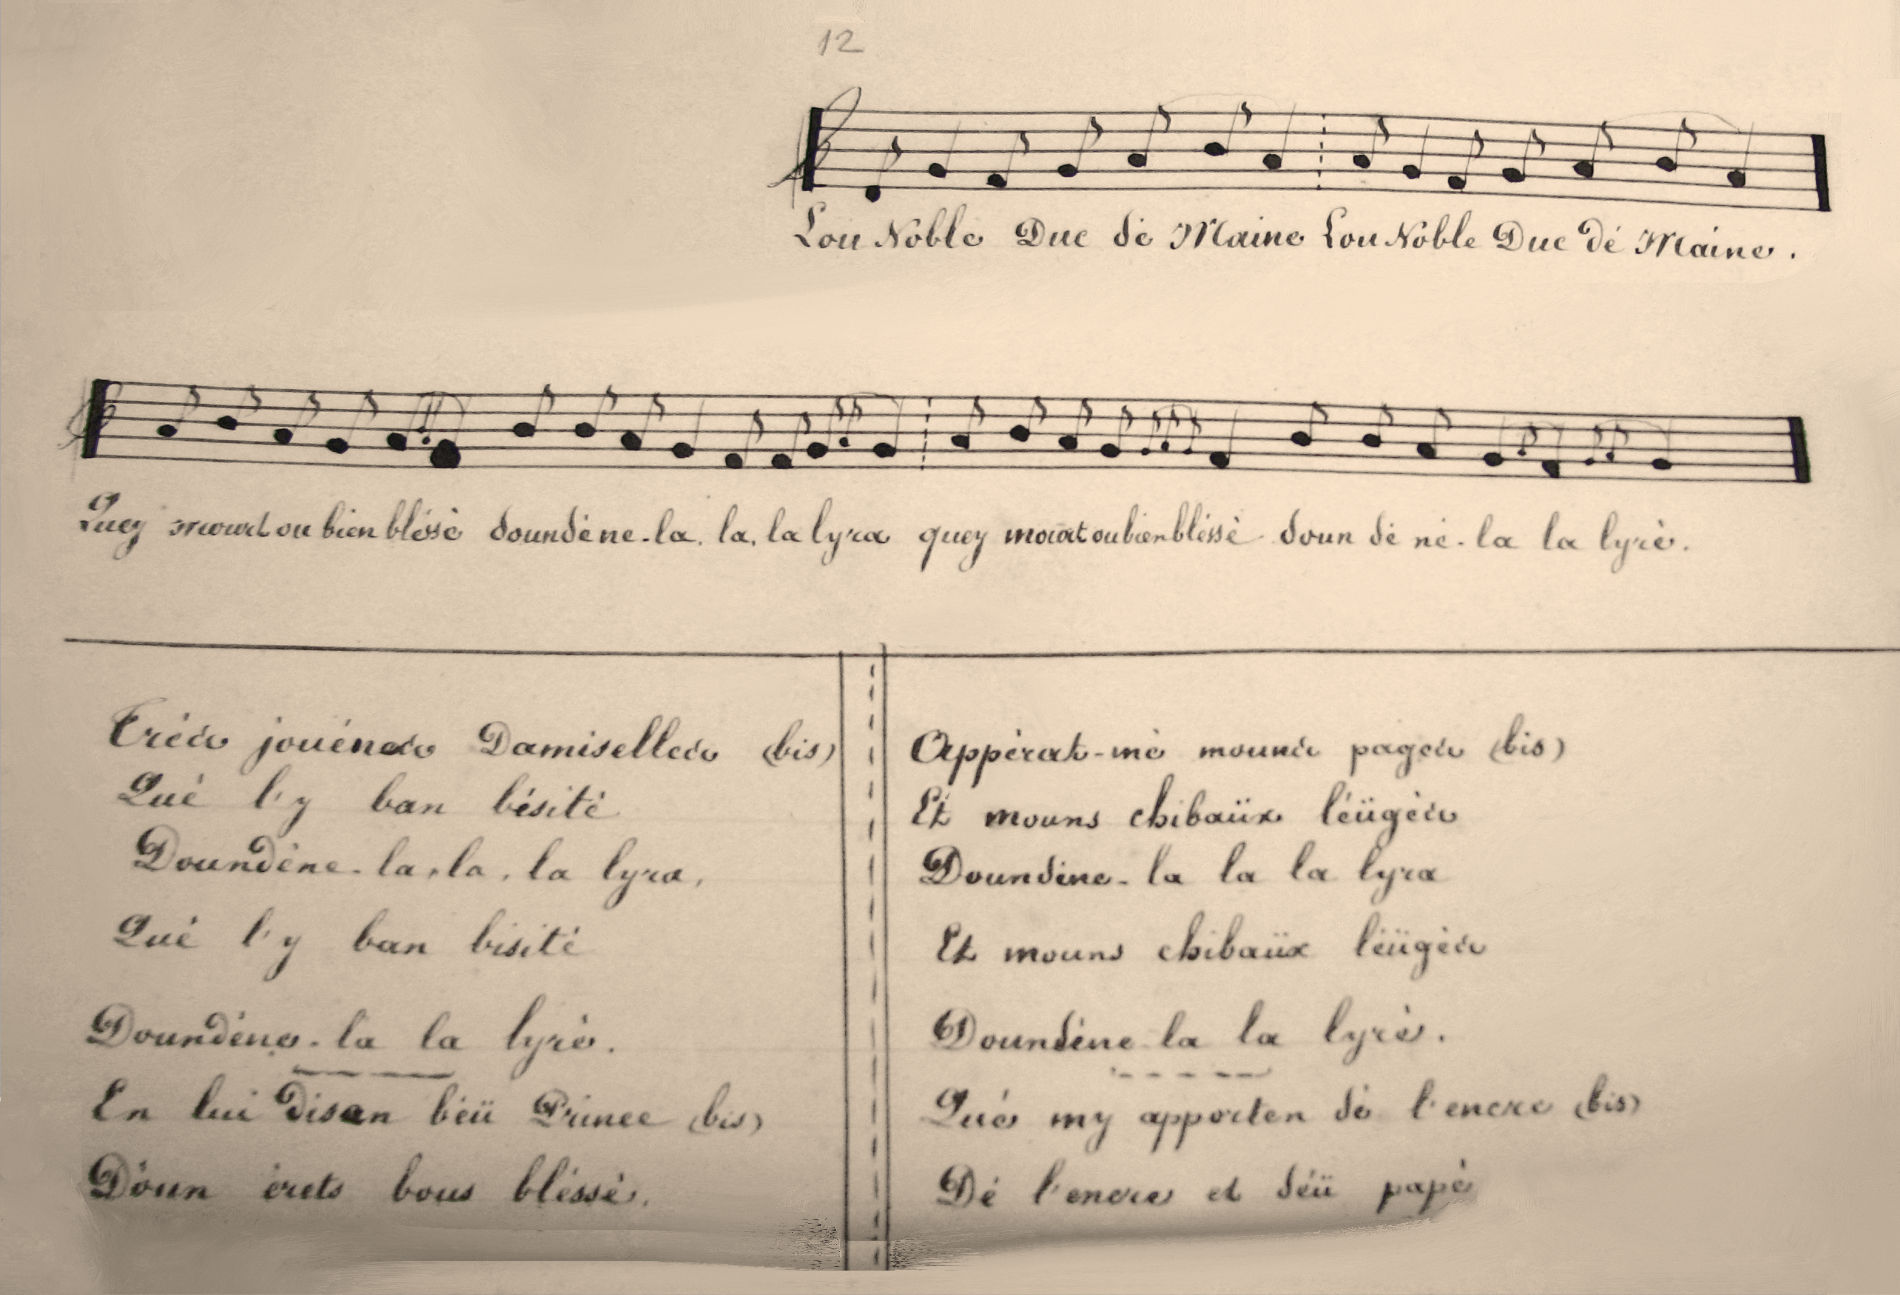 12
Lou Noble Duc dé Maine Lou Noble Duc dé Maine.
Quey mourt ou bien bléssè doundène-la, la, la lyra quey mourt ou bien bléssè doun dè né-la la lyrè.
Très jouénes Damiselles (bis)
Qué l'y ban bésité
Doundène-la, la, la lyra,
Qué l'y ban bisité
Doundène-la la lyrè.
En lui disan bèü Prince (bis)
D'oun èrets bous bléssè.
Appèrat-mè mouns pages (bis)
Et mouns chibaüx léügès
Doundène-la la la lyra
Et mouns chibaüx léügès
Doundène la la lyrè.
Qué my apporten dè l'encre (bis)
Dé l'encre et déü papè